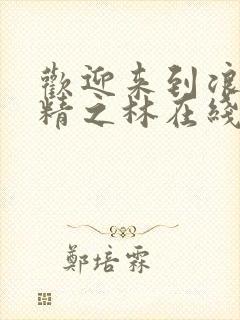 歡迎来到浪
精之林在綫
鄭培霖